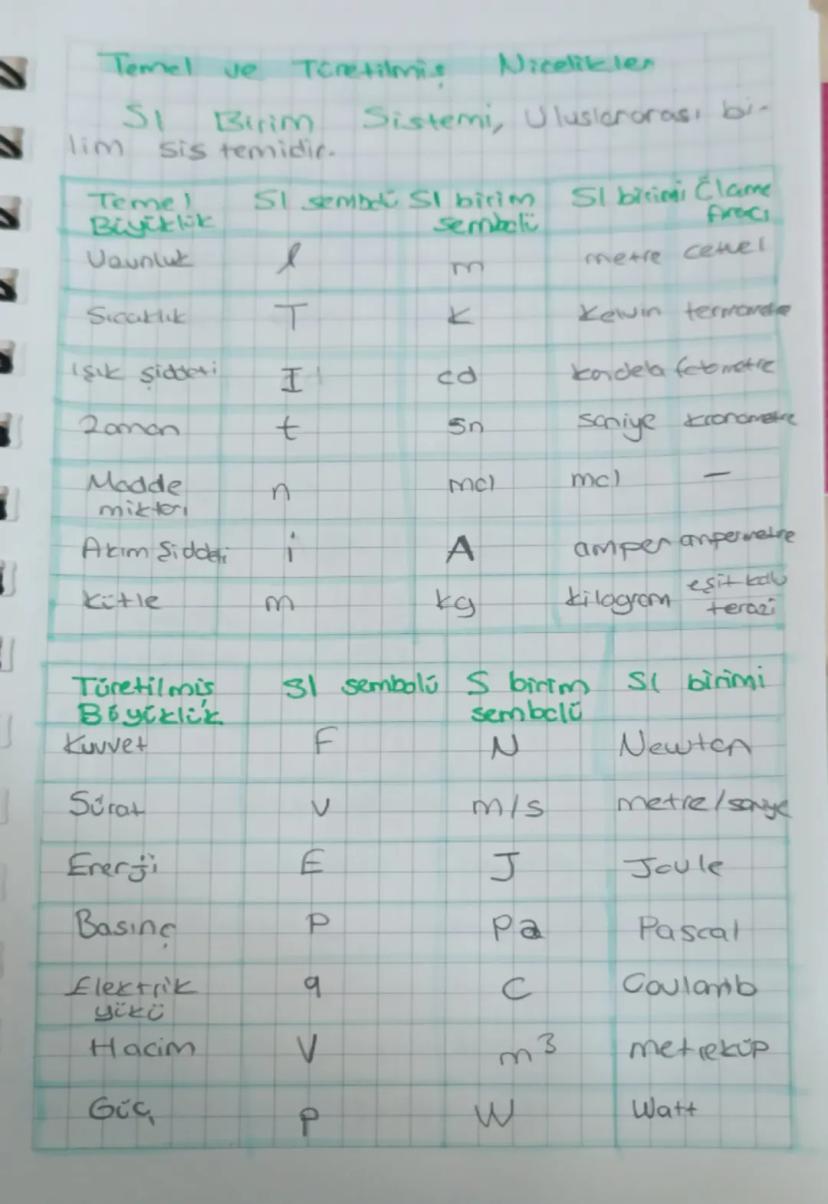 Temel ve Türetilmiş Nicelikler
SI Birim Sistemi, Uluslararası bi-
lim sistemidir.
Temel Büyüklük SI sembolü SI birim sembolü SI birimi Ölçme Aracı
Uzunluk l m metre cetvel
Sıcaklık T K Kelvin termometre
Işık Şiddeti I cd kandela fotometre
Zaman t sn saniye kronometre
Madde miktarı n mol mol —
Akım Şiddeti i A amper ampermetre
Kütle m kg kilogram eşit kollu terazi
Türetilmiş Büyüklük SI sembolü S birim sembolü SI birimi
Kuvvet F N Newton
Sürat v m/s metre/saniye
Enerji E J Joule
Basınç P Pa Pascal
Elektrik yükü q C Coulomb
Hacim V m³ metreküp
Güç P W Watt